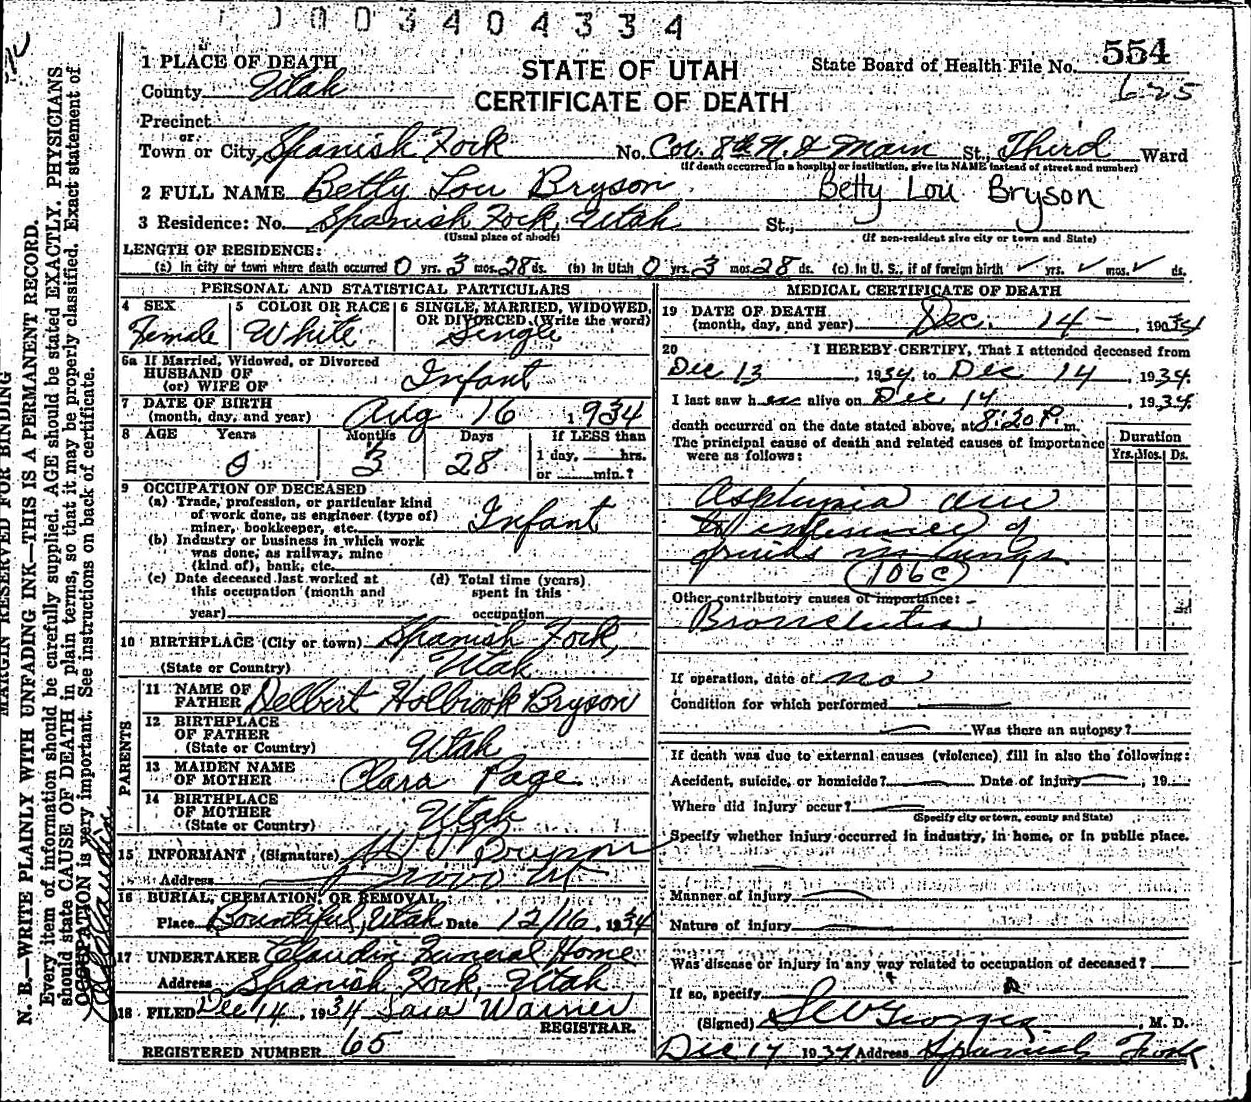 0003404334
554
1 PLACE OF DEATH
STATE OF UTAH
State Board of Health File No.
625
County Utah
CERTIFICATE OF DEATH
Precinct
or
Town or City Spanish Fork No. Cor. 8th N. & Main St., Third Ward
(If death occurred in a hospital or institution, give its NAME instead of street and number)
2 FULL NAME Betty Lou Bryson Betty Lou Bryson
3 Residence: No. Spanish Fork, Utah St.,
(Usual place of abode) (If non-resident give city or town and State)
LENGTH OF RESIDENCE:
(a) In city or town where death occurred 0 yrs. 3 mos. 28 ds. (b) In Utah 0 yrs. 3 mos. 28 ds. (c) In U. S., if of foreign birth ✓ yrs. ✓ mos. ✓ ds.
PERSONAL AND STATISTICAL PARTICULARS
4 SEX Female
5 COLOR OR RACE White
6 SINGLE, MARRIED, WIDOWED, OR DIVORCED, (Write the word) Single
6a If Married, Widowed, or Divorced
HUSBAND OF
(or) WIFE OF Infant
7 DATE OF BIRTH
(month, day, and year) Aug 16 1934
8 AGE Years Months Days If LESS than
0 3 28 1 day, hrs.
or min.?
9 OCCUPATION OF DECEASED
(a) Trade, profession, or particular kind
of work done, as engineer (type of)
miner, bookkeeper, etc. Infant
(b) Industry or business in which work
was done, as railway, mine
(kind of), bank, etc.
(c) Date deceased last worked at
this occupation (month and
year)
(d) Total time (years)
spent in this
occupation
10 BIRTHPLACE (City or town) Spanish Fork,
(State or Country) Utah
PARENTS
11 NAME OF
FATHER Delbert Holbrook Bryson
12 BIRTHPLACE
OF FATHER
(State or Country) Utah
13 MAIDEN NAME
OF MOTHER Clara Page
14 BIRTHPLACE
OF MOTHER
(State or Country) Utah
15 INFORMANT (Signature) Bryson
Address Provo Ut
16 BURIAL, CREMATION, OR REMOVAL:
Place Bountiful, Utah Date 12/16, 1934
17 UNDERTAKER Claudin Funeral Home
Address Spanish Fork, Utah
18 FILED Dec 14, 1934 Sara Warner
REGISTRAR.
REGISTERED NUMBER 65
MEDICAL CERTIFICATE OF DEATH
19 DATE OF DEATH
(month, day, and year) Dec. 14 - , 1934
20 I HEREBY CERTIFY, That I attended deceased from
Dec 13, 1934, to Dec 14, 1934.
I last saw her alive on Dec 14, 1934.
death occurred on the date stated above, at 8:20 P. m.
The principal cause of death and related causes of importance
were as follows:
Duration
Yrs. Mos. Ds.
Asphyxia due
to of
fluids in lungs
106c
Other contributory causes of importance:
Bronchitis 3d
If operation, date of no
Condition for which performed
Was there an autopsy?
If death was due to external causes (violence) fill in also the following:
Accident, suicide, or homicide? Date of injury , 19
Where did injury occur?
(Specify city or town, county and State)
Specify whether injury occurred in industry, in home, or in public place.
Manner of injury
Nature of injury
Was disease or injury in any way related to occupation of deceased?
If so, specify
(Signed) , M. D.
Dec 17 1934 Address Spanish Fork.
MARGIN RESERVED FOR BINDING
N. B.—WRITE PLAINLY WITH UNFADING INK—THIS IS A PERMANENT RECORD.
Every item of information should be carefully supplied. AGE should be stated EXACTLY. PHYSICIANS
should state CAUSE OF DEATH in plain terms, so that it may be properly classified. Exact statement of
OCCUPATION is very important. See instructions on back of certificate.